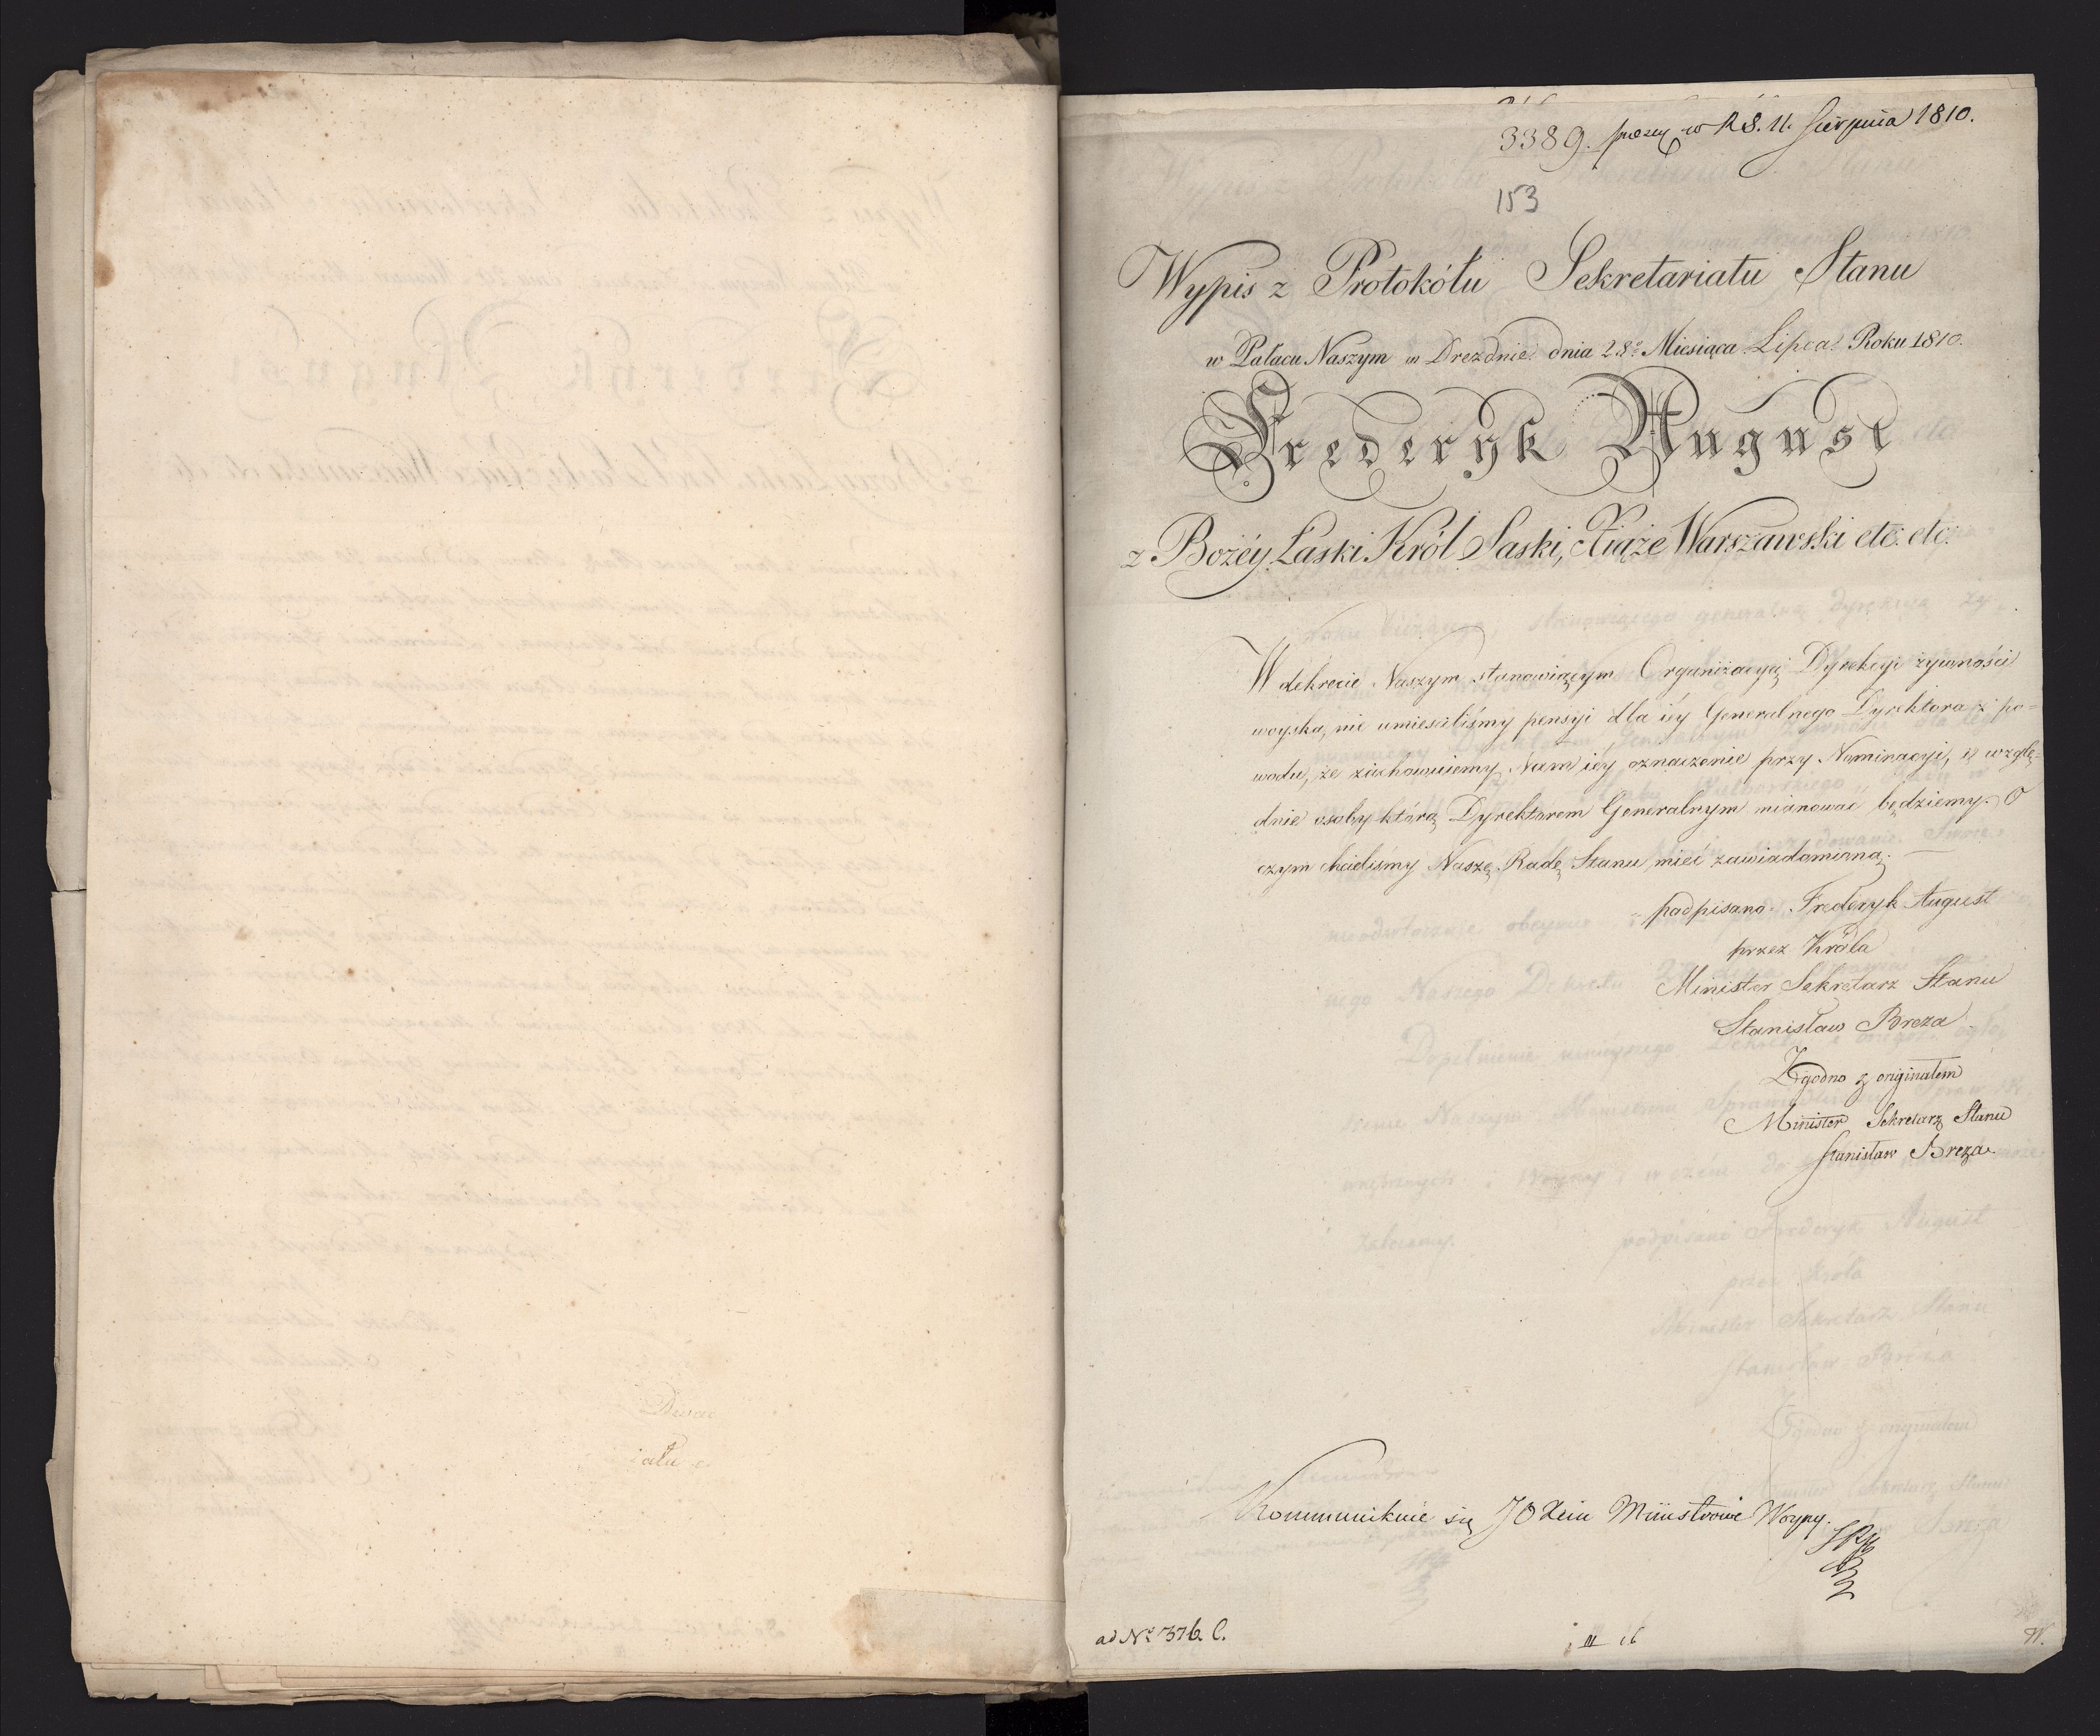 3389. w RS. 11. Sierpnia 1810.
153
Wypis z Protokółu Sekretariatu Stanu
w Pałacu Naszym w Dreznie dnia 28º Miesiąca Lipca Roku 1810.
Frederyk August
z Bożéy Łaski Król Saski, Xiąże Warszawski etc: etc:
W dekrecie Naszym stanowiącym Organizacyą Dyrekcyi żywności
woyska, nie umieściliśmy pensyi dla iéy Generalnego Dyrektora z po=
wodu, że zachowuiemy Nam iéy oznaczenie przy Nominacyi, w wzglę=
dnie osoby którą Dyrektorem Generalnym mianować będziemy. O
czym chcieliśmy Naszę Radę Stanu mieć zawiadomioną.
podpisano Frederyk August
przez Króla
Minister Sekretarz Stanu
Stanisław Breza
Zgodno z originałem
Minister Sekretarz Stanu
Stanisław Breza
Kommunikuie się JO Xciu Ministrowi Woyny.
ad Nº 376. C.
W.